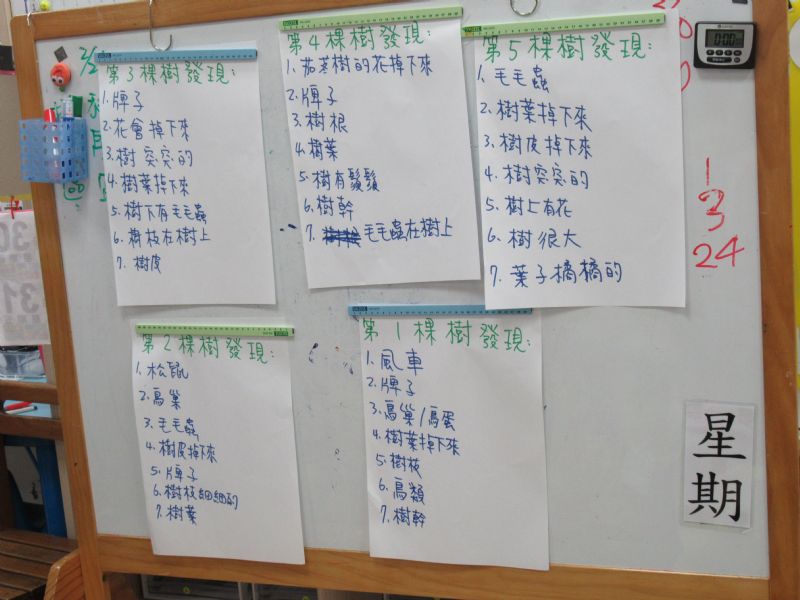 第3棵樹發現:
1.牌子
2.花會掉下來
3.樹突突的
4.樹葉掉下來
5.樹下有毛毛蟲
6.樹枝在樹上
7.樹皮
第4棵樹發現:
1.茄苳樹的花掉下來
2.牌子
3.樹根
4.樹葉
5.樹有鬚鬚
6.樹幹
7.毛毛蟲在樹上
第5棵樹發現:
1.毛毛蟲
2.樹葉掉下來
3.樹皮掉下來
4.樹突突的
5.樹上有花
6.樹很大
7.葉子橘橘的
第2棵樹發現:
1.松鼠
2.鳥巢
3.毛毛蟲
4.樹皮掉下來
5.牌子
6.樹枝細細的
7.樹葉
第1棵樹發現:
1.風車
2.牌子
3.鳥巢/鳥蛋
4.樹葉掉下來
5.樹枝
6.鳥類
7.樹幹
1
3
24
星期
30
31